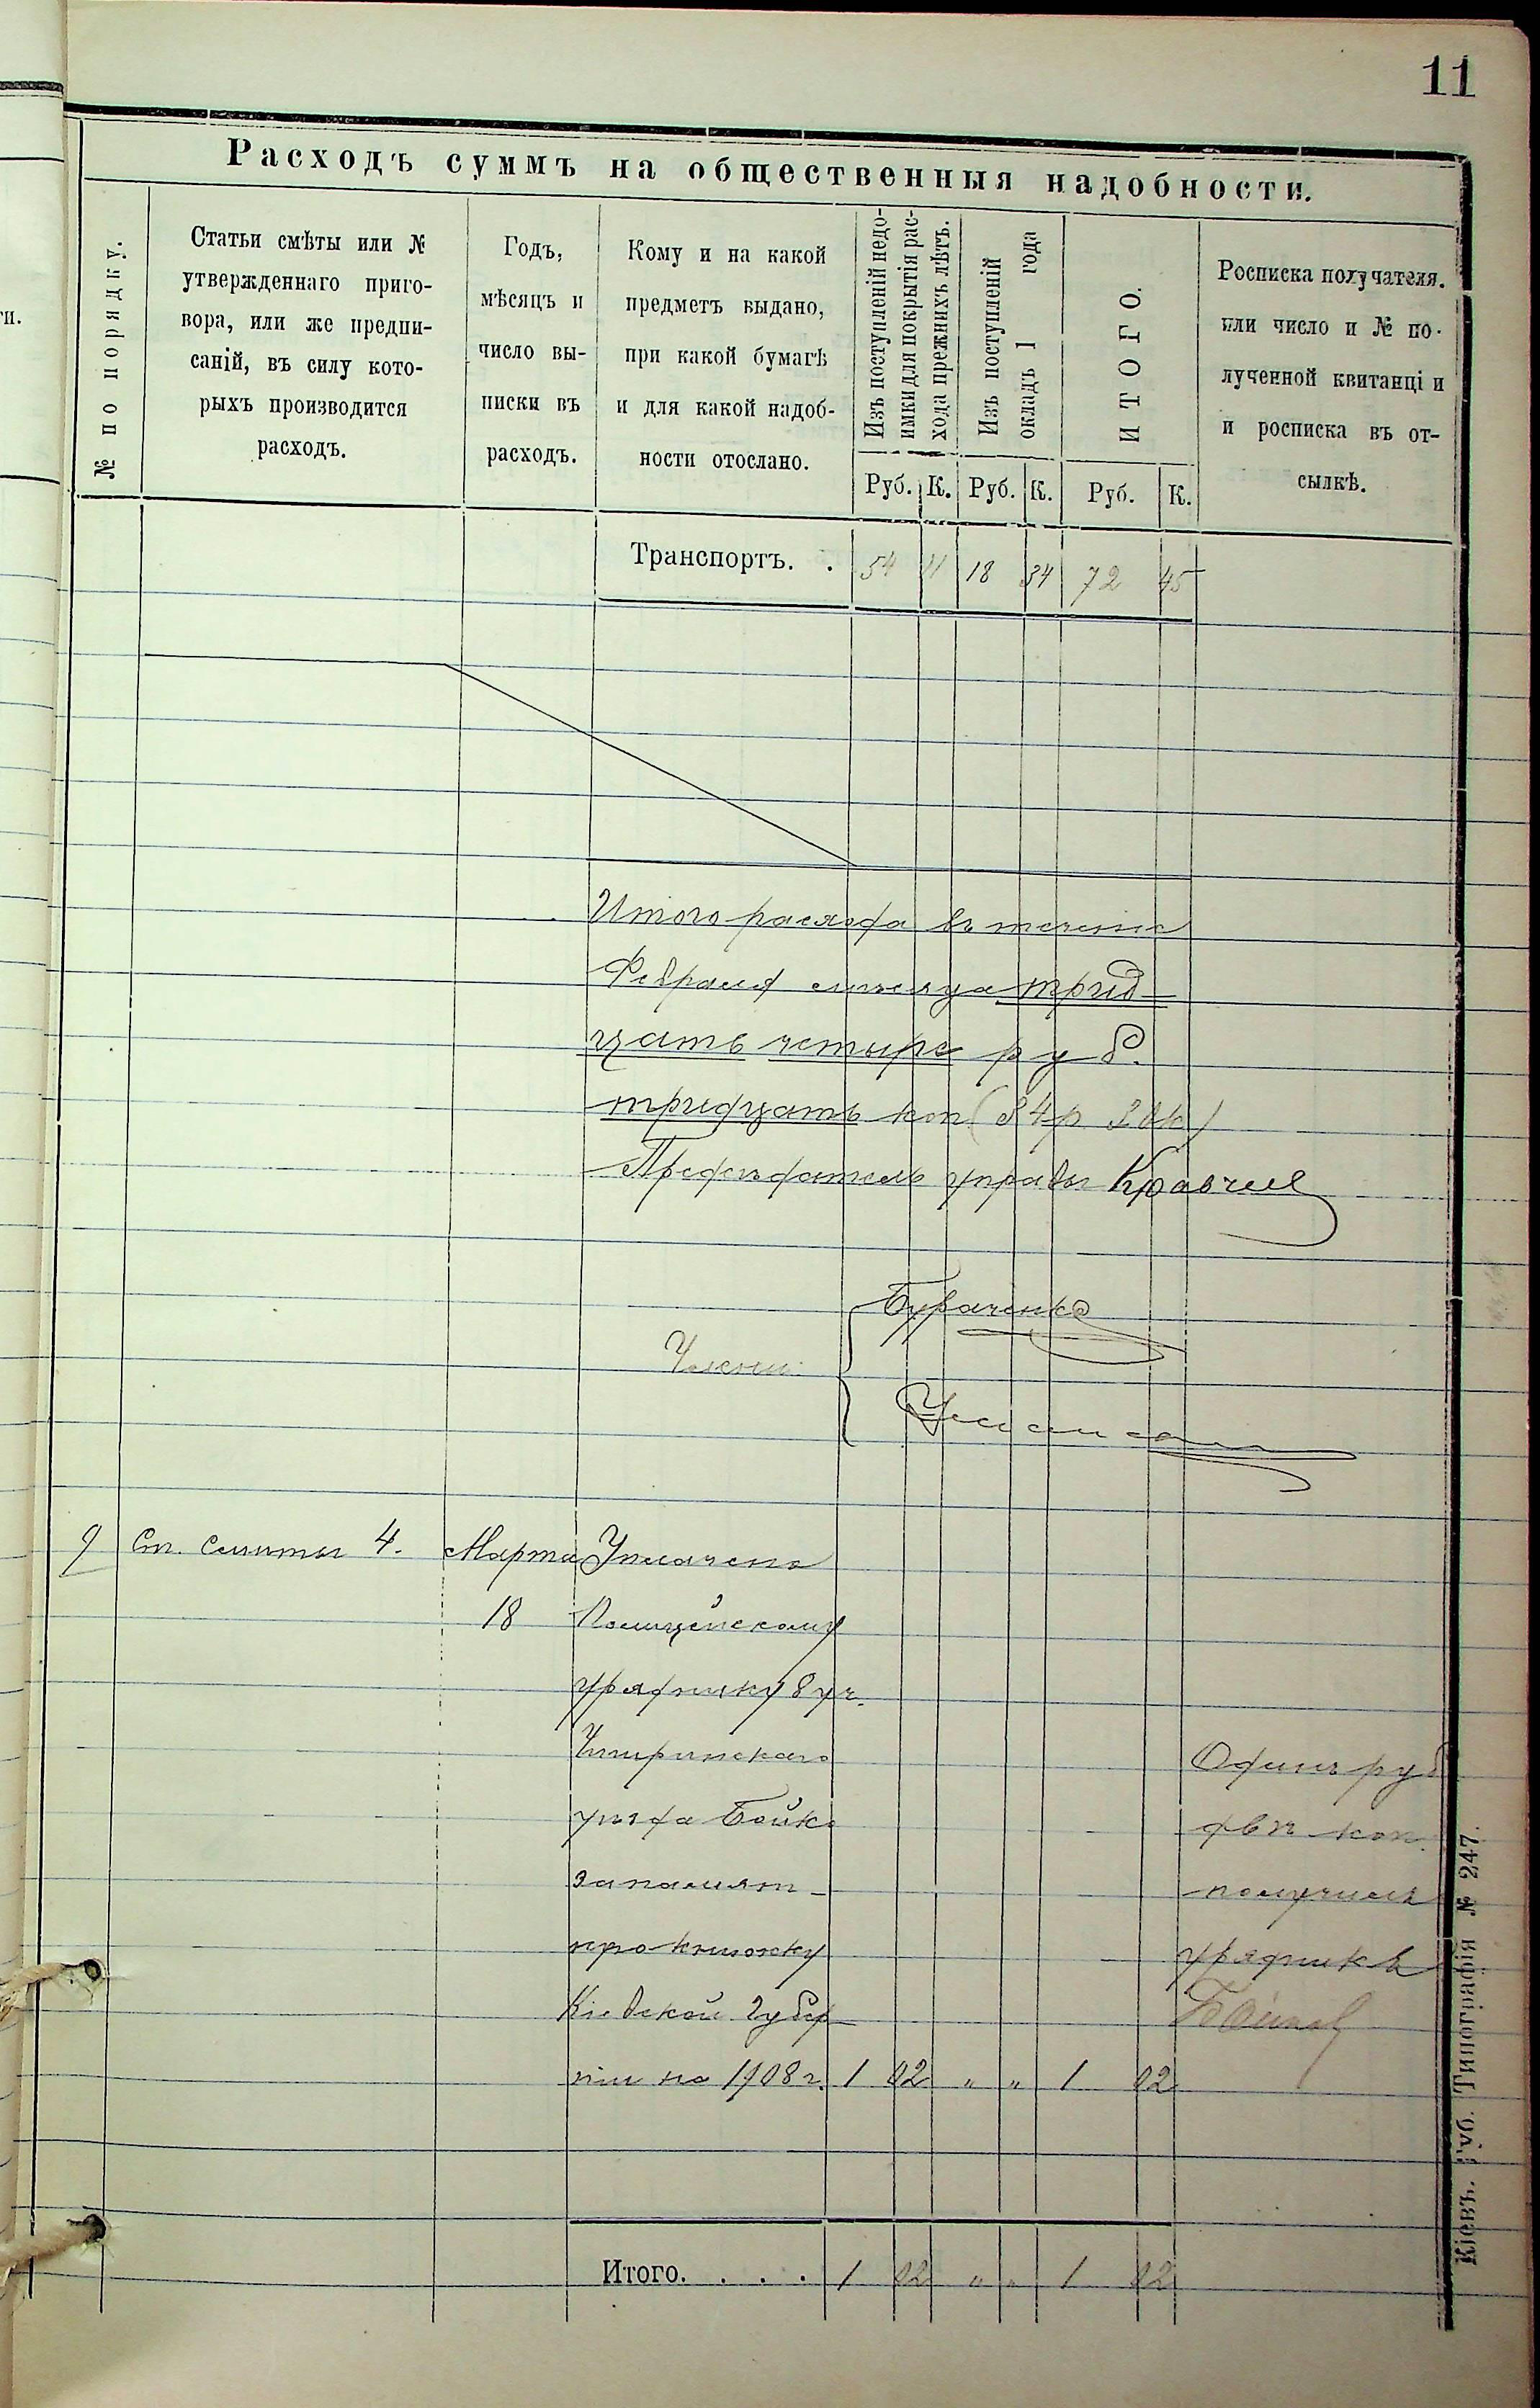 11
Расходъ суммъ на общественныя надобности.
№ по порядку.
Статьи смѣты или №
утвержденнаго приго-
вора, или же предпи-
саній, въ силу кото-
рыхъ производится
расходъ.
Годъ,
мѣсяцъ и
число вы-
писки въ
расходъ.
Кому и на какой
предметъ выдано,
при какой бумагѣ
и для какой надоб-
ности отослано.
Изъ поступленій недо-
имки для покрытія рас-
хода прежнихъ лѣтъ.
Изъ поступленій
окладъ 1 года
ИТОГО.
Росписка получателя.
или число и № по-
лученной квитанціи
и росписка въ от-
сылкѣ.
Руб. К. Руб. К. Руб. К.
Транспортъ. . 54 11 18 34 72 45
Итого расхода въ теченіе
Февраля мѣсяца трид-
цать четыре руб.
тридцать коп (34р 30к)
Предсѣдатель управы Кравчен
Члены: Бураченко
9 Ст. смѣты 4. Марта Уплачено
18 Полицейскому
уряднику 8 уч.
Чигиринскаго Одинъ руб
уѣзда Бойко двѣ коп.
за памят- получилъ
ную книжку урядникъ
Кіевской губер- Бойко
ніи на 1908 г. 1 02 " " 1 02
Итого. . . . 1 02 " " 1 02
Кіевъ. Губ. Типографія № 247.
ти.